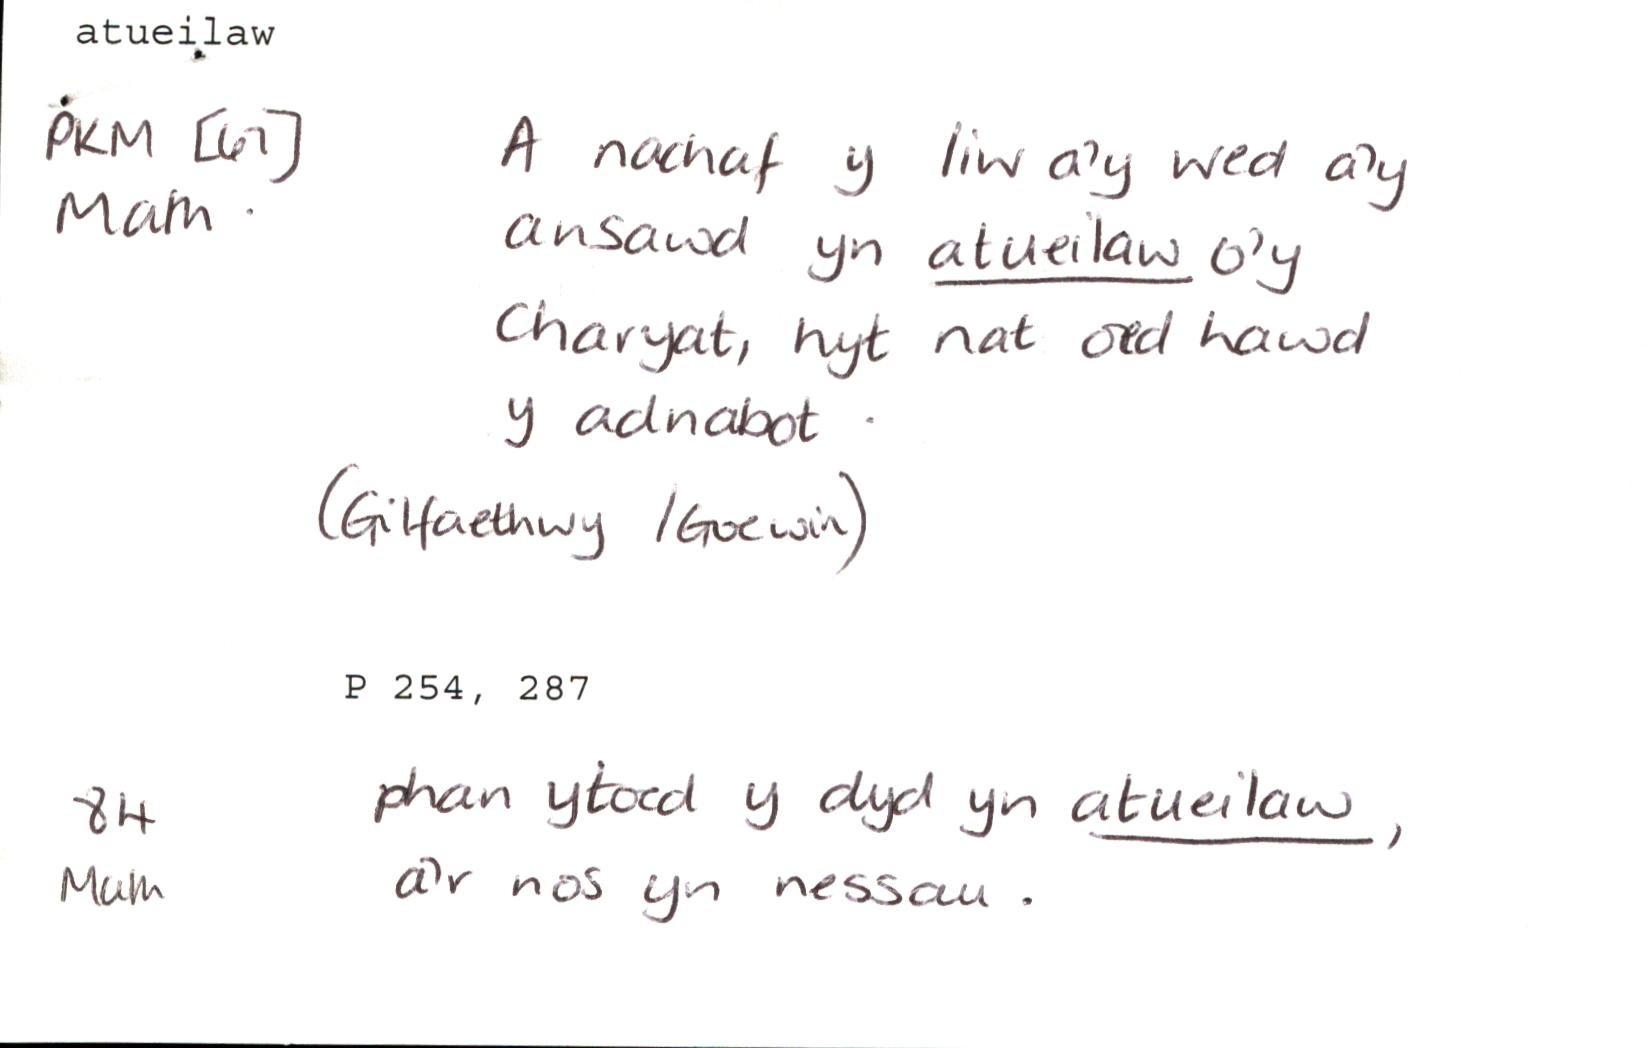 atueilaw
PKM [67] A nachaf y liw a'y wed a'y
Math. ansawd yn atueilaw o'y
charyat, hyt nat oed hawd
y adnabot.
(Gilfaethwy / Goewin)
P 254, 287
84 phan ytoed y dyd yn atueilaw,
Math a'r nos yn nessau.